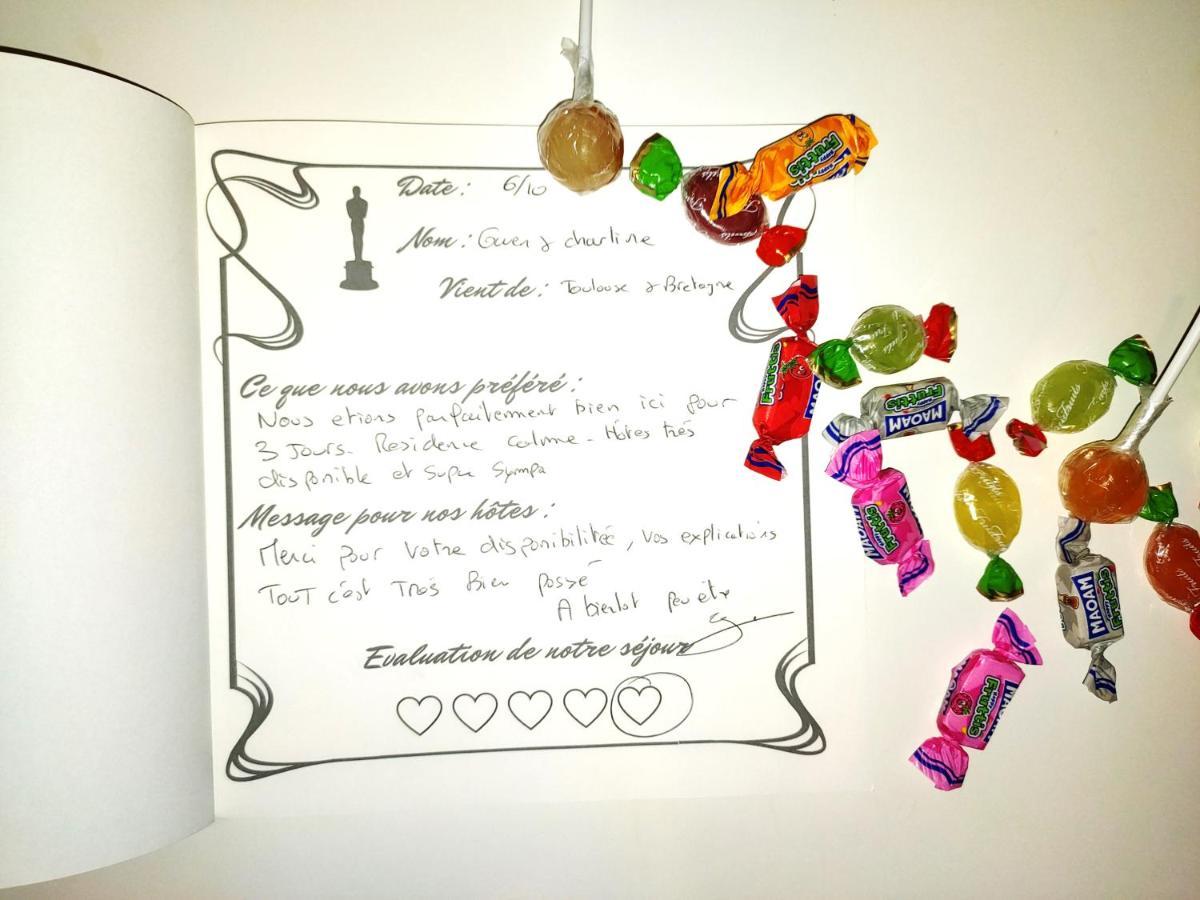 Date : 6/10
Nom : Gwen & charline
Vient de : Toulouse & Bretagne
Ce que nous avons préféré :
Nous etions parfaitement bien ici pour
3 Jours. Residence calme - Hôtes très
disponible et super sympa
Message pour nos hôtes :
Merci pour votre disponibilitée, vos explications
Tout c'est très bien passé
A bientot peu etre
Evaluation de notre séjour
Fruttis
Fruttis
MAOAM
Fruttis
MAOAM
Fruttis
MAOAM
Fruttis
MAOAM
Fruttis
MAOAM
Fruttis